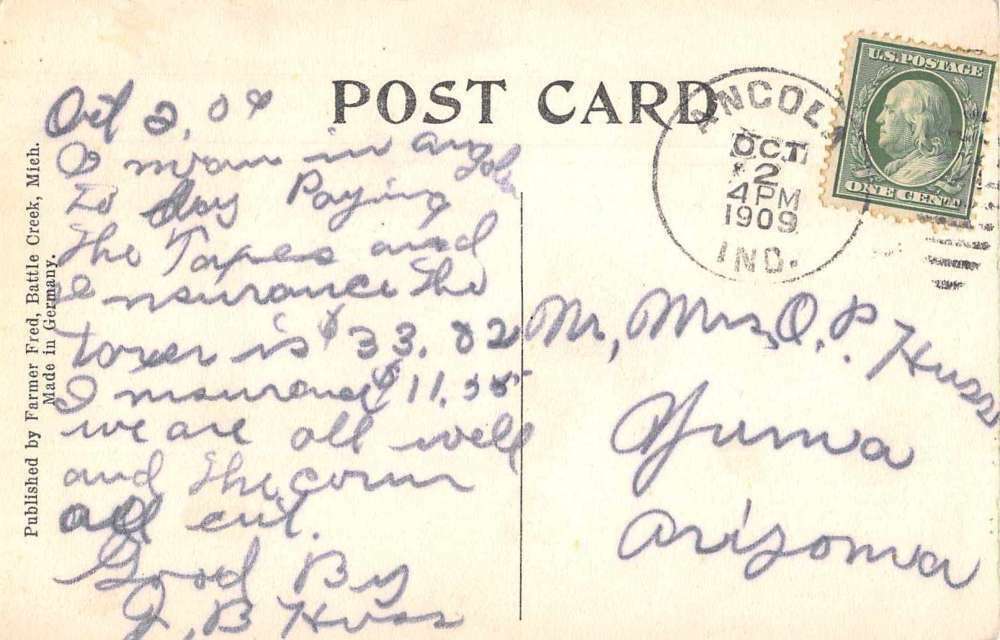 POST CARD
Published by Farmer Fred, Battle Creek, Mich.
Made in Germany.
Oct 2, 09
in angola
to day Paying
the Taxes and
ensurance the
taxes is $33.82
Insurance $11.55
we are all well
and the corn
all cut.
Good By
J, B Huss
ANCOLA
OCT
2
4PM
1909
IND.
U.S. POSTAGE
ONE CENT
Mr, Mrs, O, P. Huss
Yuma
Arizona